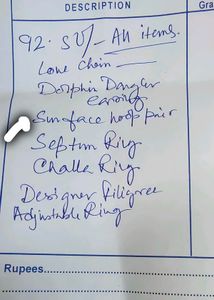 DESCRIPTION
Gra
92.5%- All items.
Long chain
Dolphin Dangler
earring
Surface hoop pair
Septum Ring
Challa Ring
Designer Filigree
Adjustable Ring
Rupees